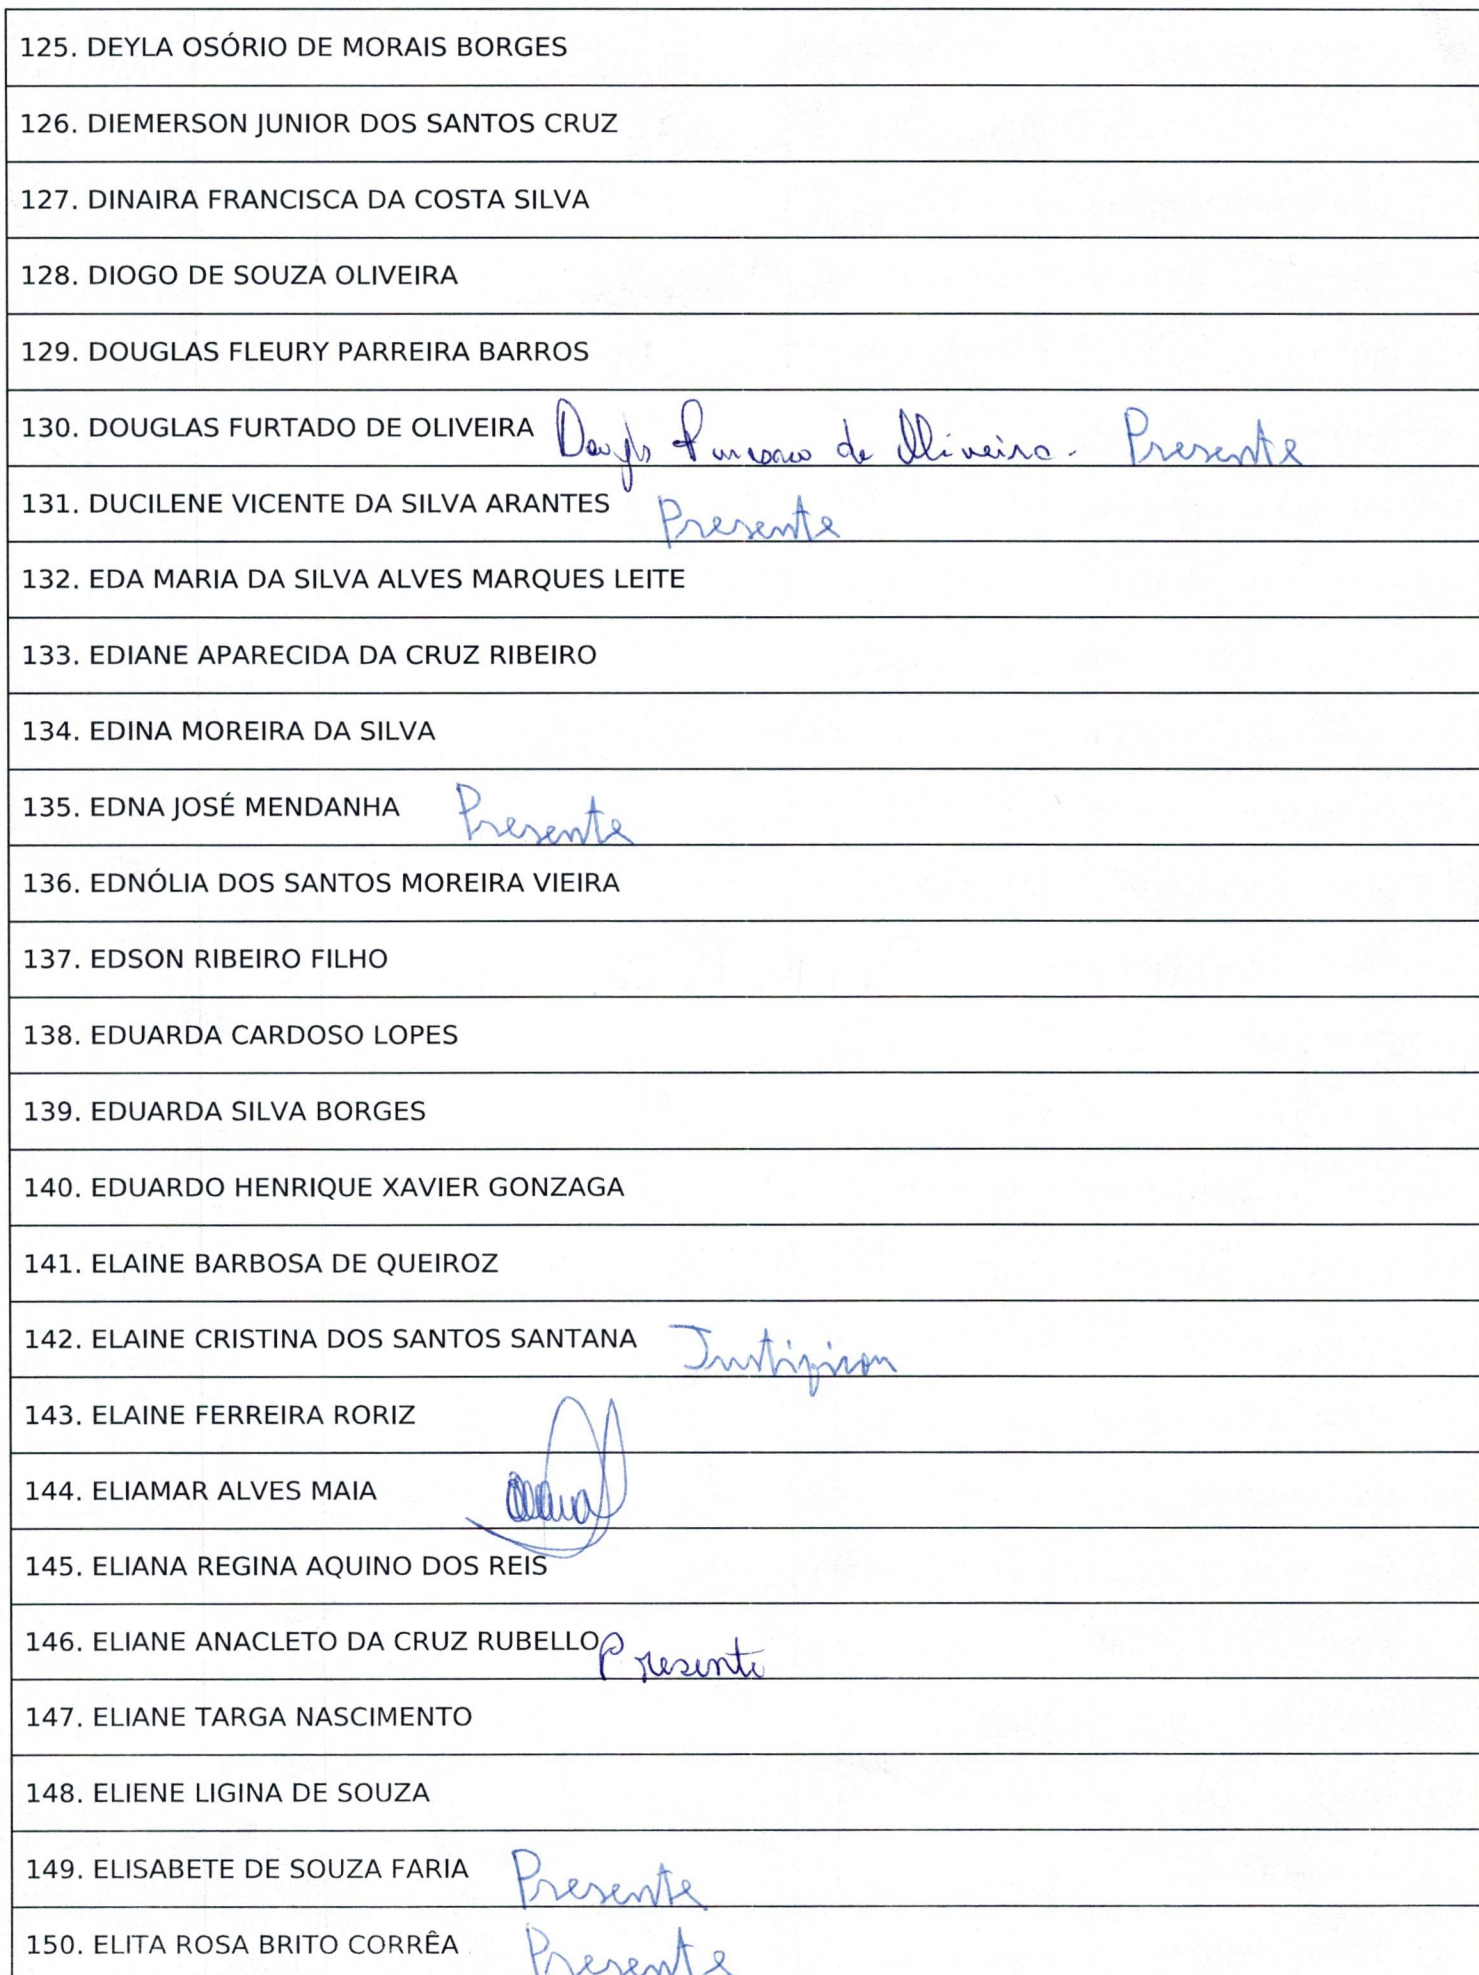 125. DEYLA OSÓRIO DE MORAIS BORGES
126. DIEMERSON JUNIOR DOS SANTOS CRUZ
127. DINAIRA FRANCISCA DA COSTA SILVA
128. DIOGO DE SOUZA OLIVEIRA
129. DOUGLAS FLEURY PARREIRA BARROS
130. DOUGLAS FURTADO DE OLIVEIRA de Oliveira. Presente
131. DUCILENE VICENTE DA SILVA ARANTES Presente
132. EDA MARIA DA SILVA ALVES MARQUES LEITE
133. EDIANE APARECIDA DA CRUZ RIBEIRO
134. EDINA MOREIRA DA SILVA
135. EDNA JOSÉ MENDANHA Presente
136. EDNÓLIA DOS SANTOS MOREIRA VIEIRA
137. EDSON RIBEIRO FILHO
138. EDUARDA CARDOSO LOPES
139. EDUARDA SILVA BORGES
140. EDUARDO HENRIQUE XAVIER GONZAGA
141. ELAINE BARBOSA DE QUEIROZ
142. ELAINE CRISTINA DOS SANTOS SANTANA Justificou
143. ELAINE FERREIRA RORIZ
144. ELIAMAR ALVES MAIA
145. ELIANA REGINA AQUINO DOS REIS
146. ELIANE ANACLETO DA CRUZ RUBELLO Presente
147. ELIANE TARGA NASCIMENTO
148. ELIENE LIGINA DE SOUZA
149. ELISABETE DE SOUZA FARIA Presente
150. ELITA ROSA BRITO CORRÊA Presente